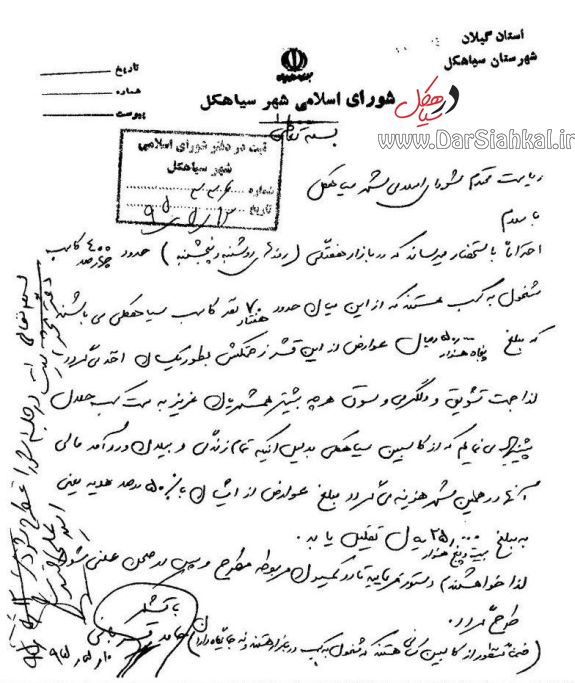 استان گیلان
شهرستان سیاهکل
تاریخ
شماره
پیوست
شورای اسلامی شهر سیاهکل
در سیاهکل
www.DarSiahkal.ir
بسمه تعالی
ثبت در دفتر شورای اسلامی
شهر سیاهکل
شماره
تاریخ
ریاست محترم شورای اسلامی شهر سیاهکل
با سلام
احتراماً باستحضار میرساند که در بازار هفتگی (روزهای دوشنبه و پنجشنبه) حدود ۴۰۰ کاسب
چهارصد
مشغول به کسب هستند که از این میان حدود ۷۰ نفر کاسب سیاهکلی می باشند
هفتاد
که مبلغ ۵۰,۰۰۰ ریال عوارض از این قشر زحمتکش بطور یکسان اخذ می گردد
پنجاه هزار
لذا جهت تشویق و دلگرمی و سوق هرچه بیشتر همشهریان عزیز به سمت کسب حلال
پیشنهاد می نمایم که از کاسبین سیاهکلی بدلیل آنکه تمام زندگی و درآمد مالی
آنها در همین شهر هزینه می گردد مبلغ عوارض از ایشان با ۵۰٪ درصد یعنی
به مبلغ ۲۵,۰۰۰ ریال تقلیل یابد.
بیست و پنج هزار
لذا خواهشمندم دستور فرمایید تا در کمیسیون مربوطه مطرح و سپس در صحن علنی شورا
مطرح گردد.
با تشکر
(ضمناً منظور از کاسبین کسانی هستند که مشغول به کسب در بازار هستند و نه جایگاه دارند)
بسمه تعالی